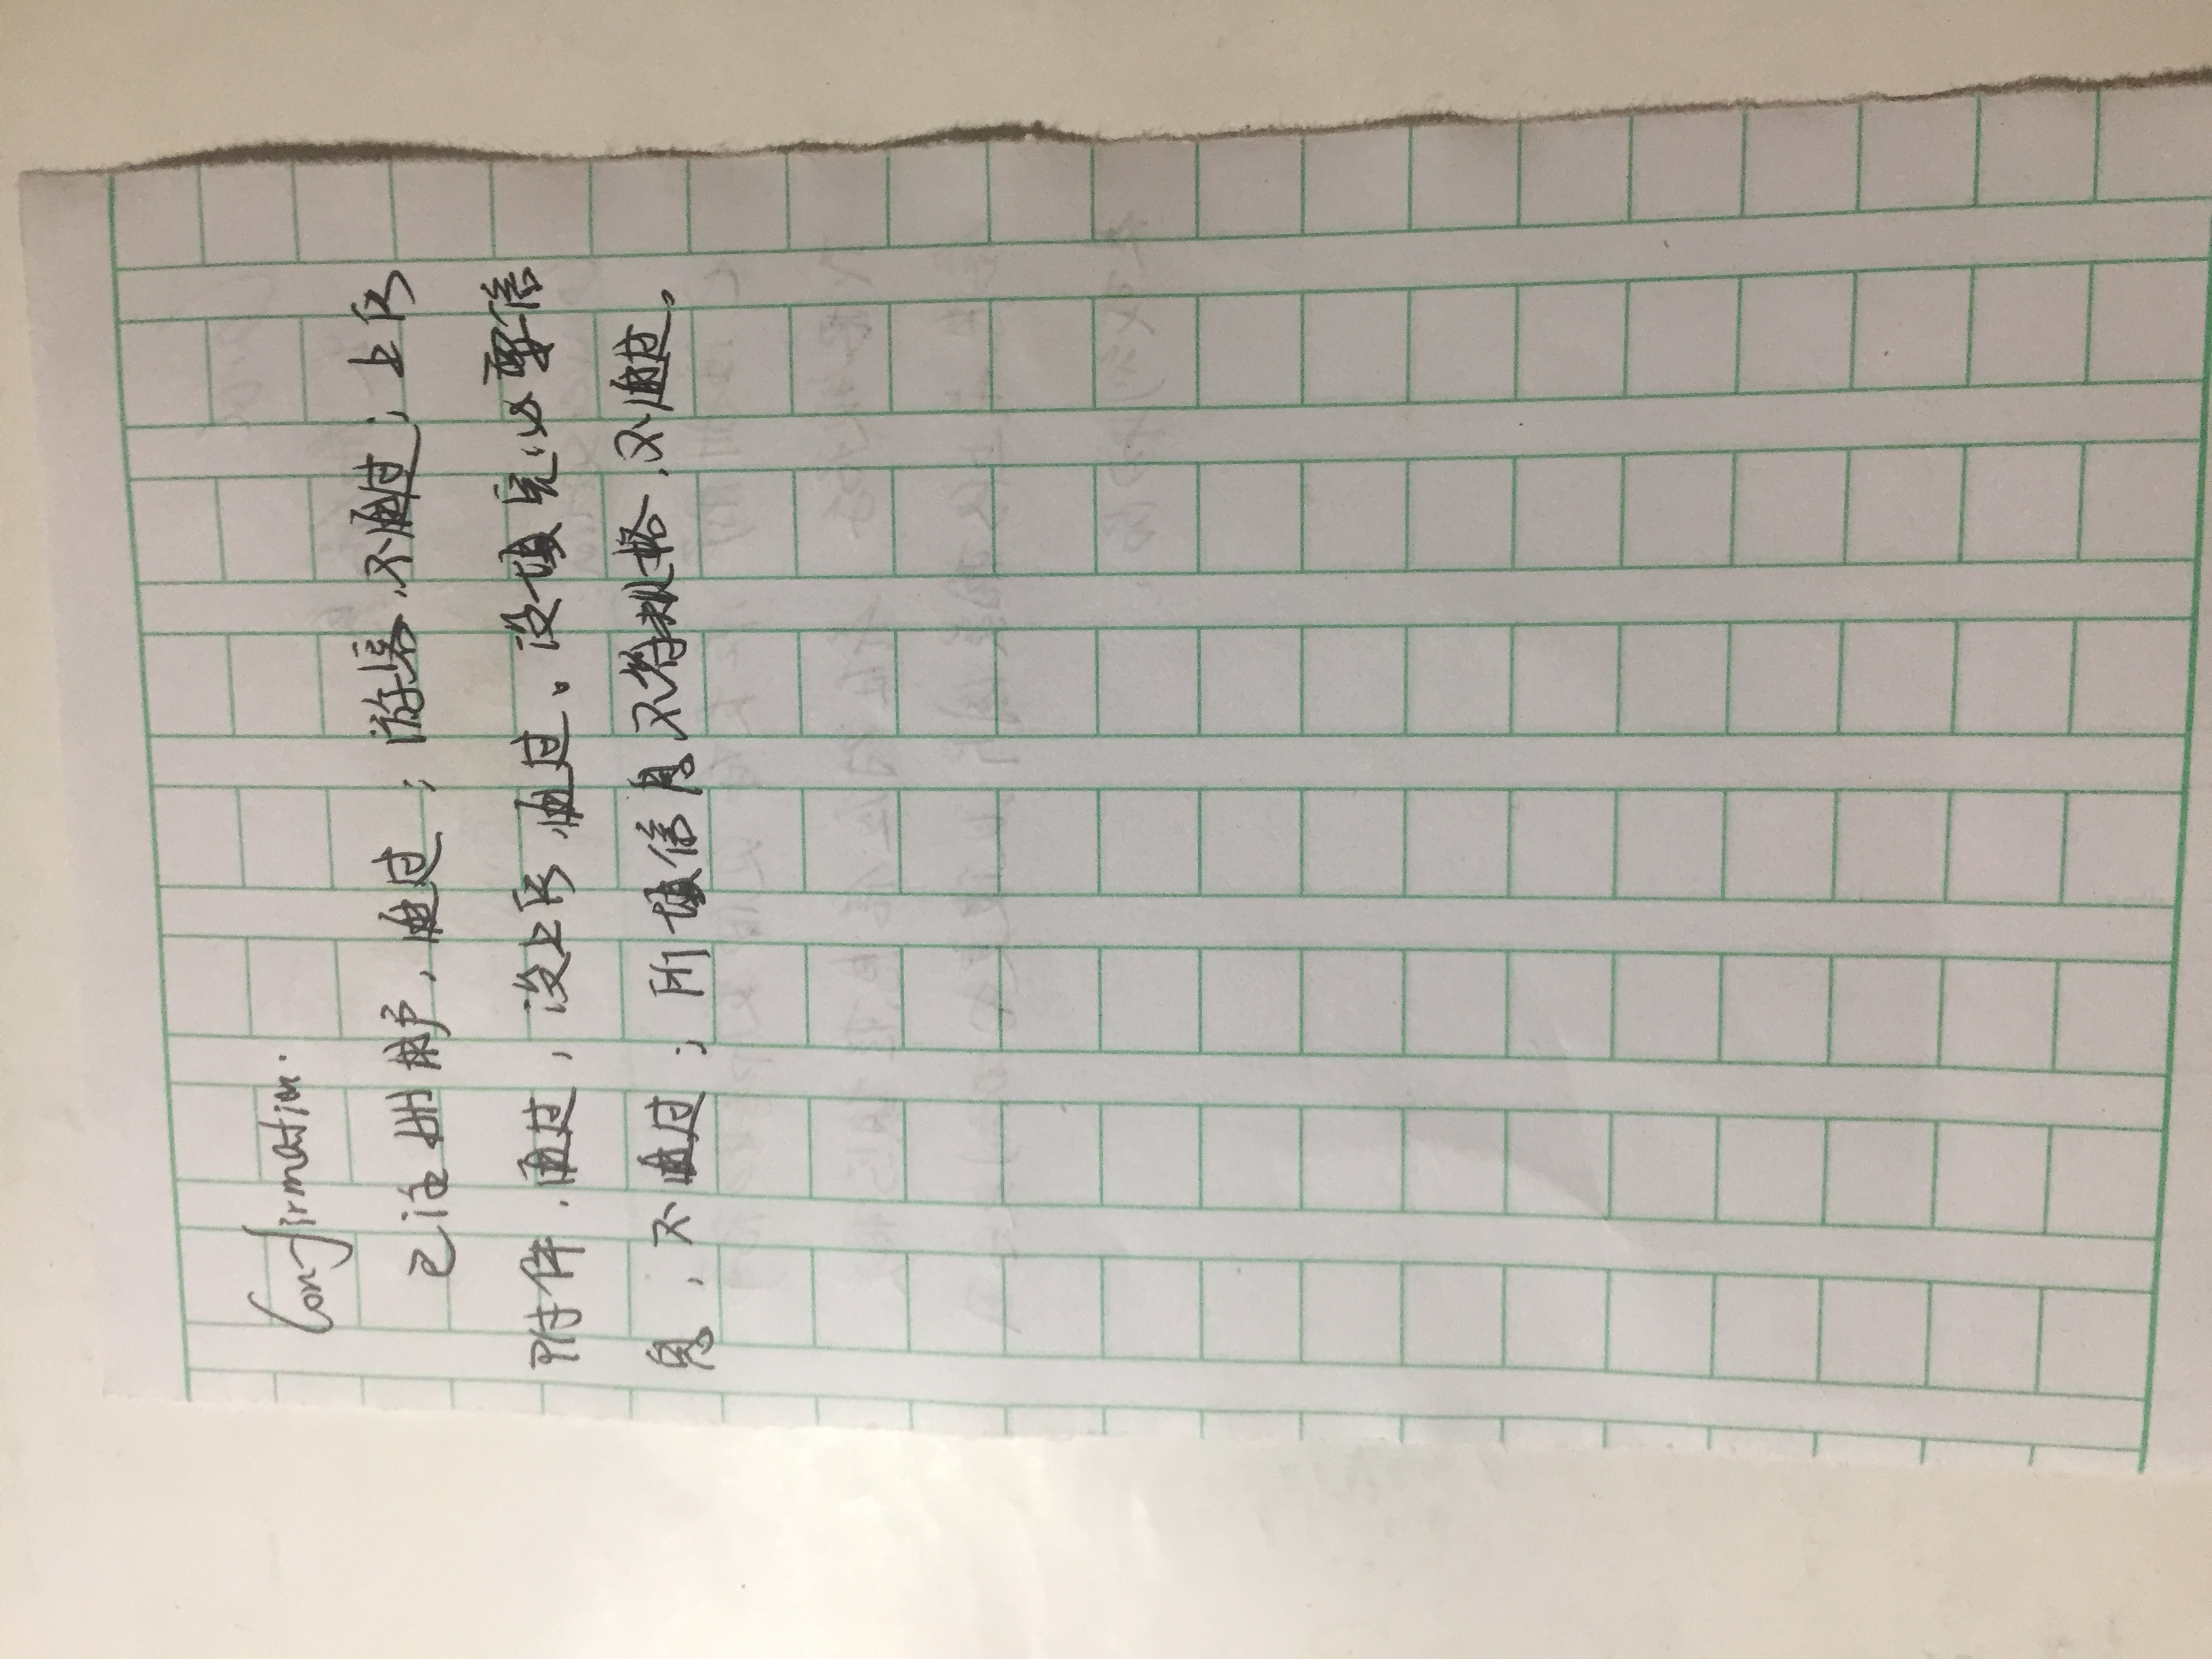 Confirmation.
已注册用户，通过；游客，不通过；上传
附件，通过，没上传，通过。没填完必要信
息，不通过；所填信息不符规格，不通过。